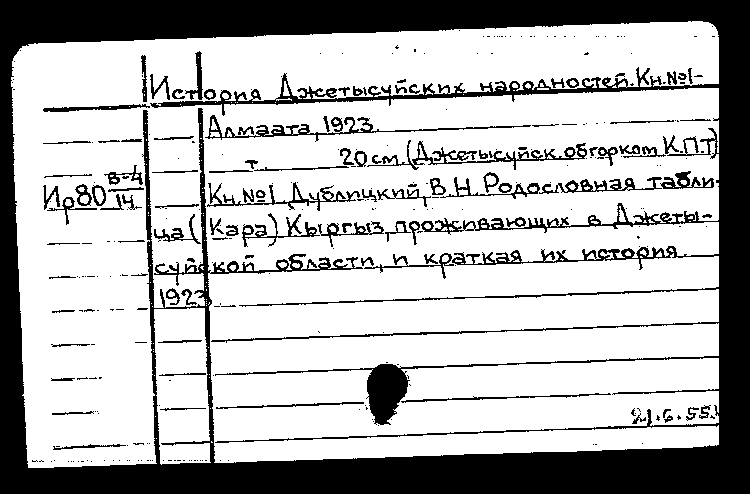 История Джетысуйских народностей. Кн.№1-
Алмаата, 1923.
т. 20 см. (Джетысуйск. обгорком К.П.Т)
Ир80 В-4/14
Кн.№1. Дублицкий, В.Н. Родословная табли-
ца (Кара) Кыргыз, проживающих в Джеты-
суйской области, и краткая их история.
1923
21.6.55